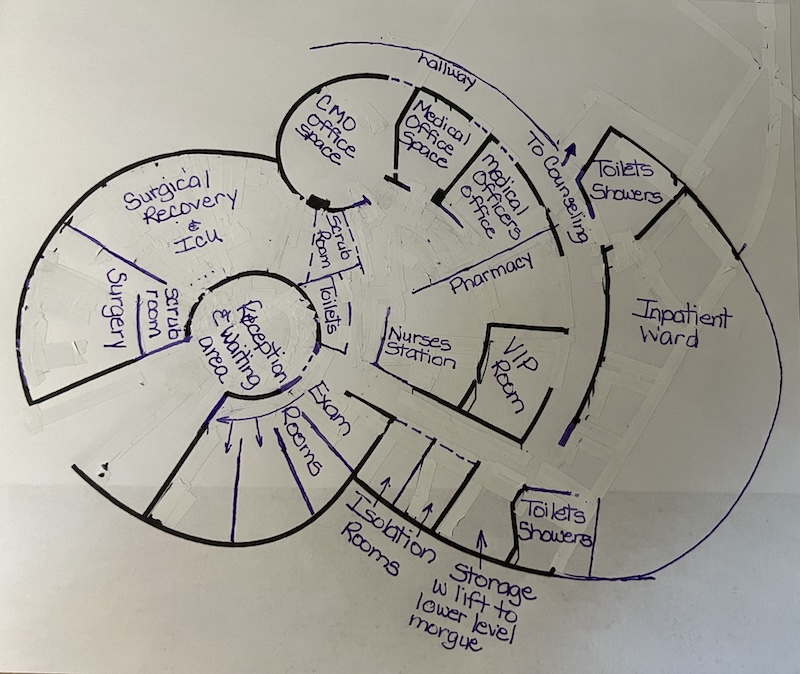 hallway
CMO
Office
Space
Medical
Office
Space
medical
Officers
office
To Counseling
Toilets
Showers
Surgical
Recovery
&
ICU
Scrub
Room
Toilets
Pharmacy
Surgery
Scrub
room
Reception
& waiting
area
Nurses
Station
VIP
Room
Inpatient
Ward
Exam
Rooms
Isolation
Rooms
Toilets
Showers
Storage
w lift to
lower level
morgue